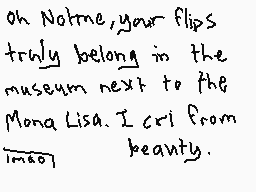 Oh Notme, your flips
truly belong in the
museum next to the
Mona Lisa. I cri from
beauty.
lmao